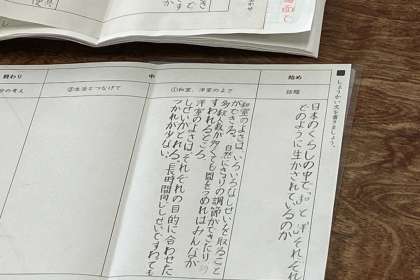 ■しょうかい文を書きましょう。
始め
中
終わり
話題
①和室、洋室のよさ
②生活とつなげて
日本のくらしの中で、和と洋それぞれ
どのように生かされているのか
和室のよさは、いろいろなしせいを取ること
ができる。自然にきょりの調節ができたり
多少人数が多くても間をつめればみんなが
すわれるところ
洋室のよさは、それぞれの目的に合わせた
しせいがとれる。長時間同じしせいですわっても
つかれが少ない。